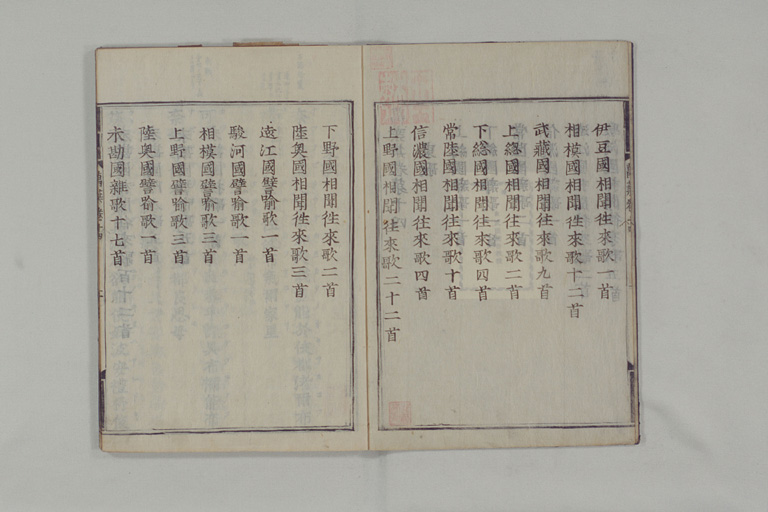 伊豆國相聞徃來歌一首
相模國相聞徃來歌十二首
武藏國相聞徃來歌九首
上総國相聞徃來歌二首
下総國相聞徃來歌四首
常陸國相聞徃來歌十首
信濃國相聞徃來歌四首
上野國相聞徃來歌二十二首
下野國相聞徃來歌二首
陸奥國相聞徃來歌三首
遠江國譬喻歌一首
駿河國譬喻歌一首
相模國譬喻歌三首
上野國譬喻歌三首
陸奥國譬喻歌一首
未勘國雜歌十七首